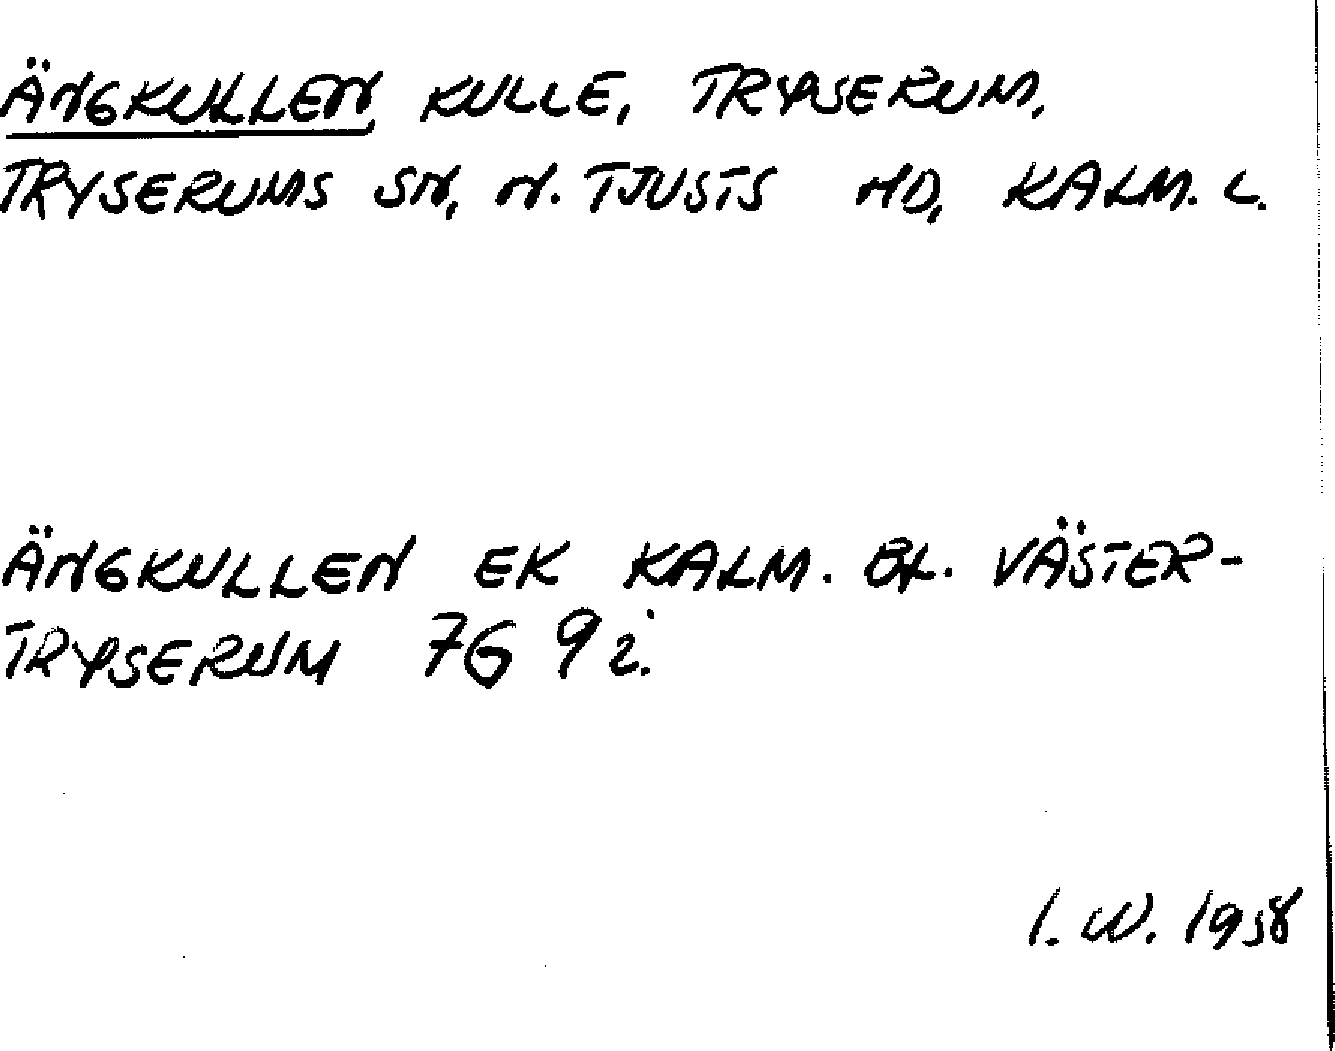 ÄNGKULLEN, KULLE, TRYSERUM,
TRYSERUMS SN, N. TJUSTS HD, KALM. L.
ÄNGKULLEN EK KALM. BL. VÄSTER-
TRYSERUM 7G 9 i.
I. W. 1958